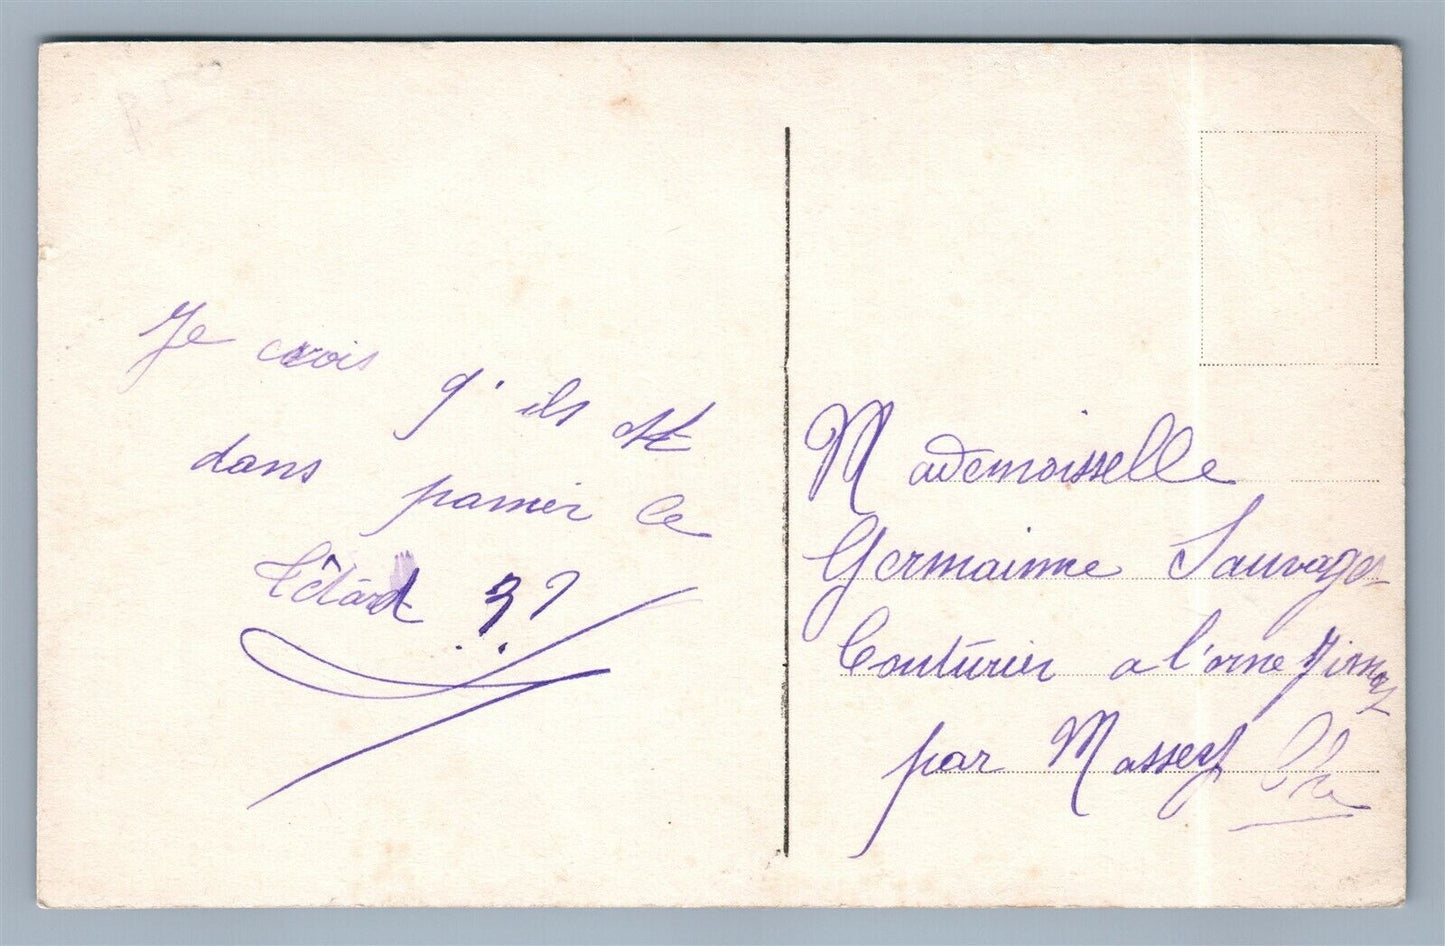 Je crois
q' ils
dans panier le
Têtard ??
Mademoisselle
Germainne Sauvage
Couturier a l'orme
par Massay